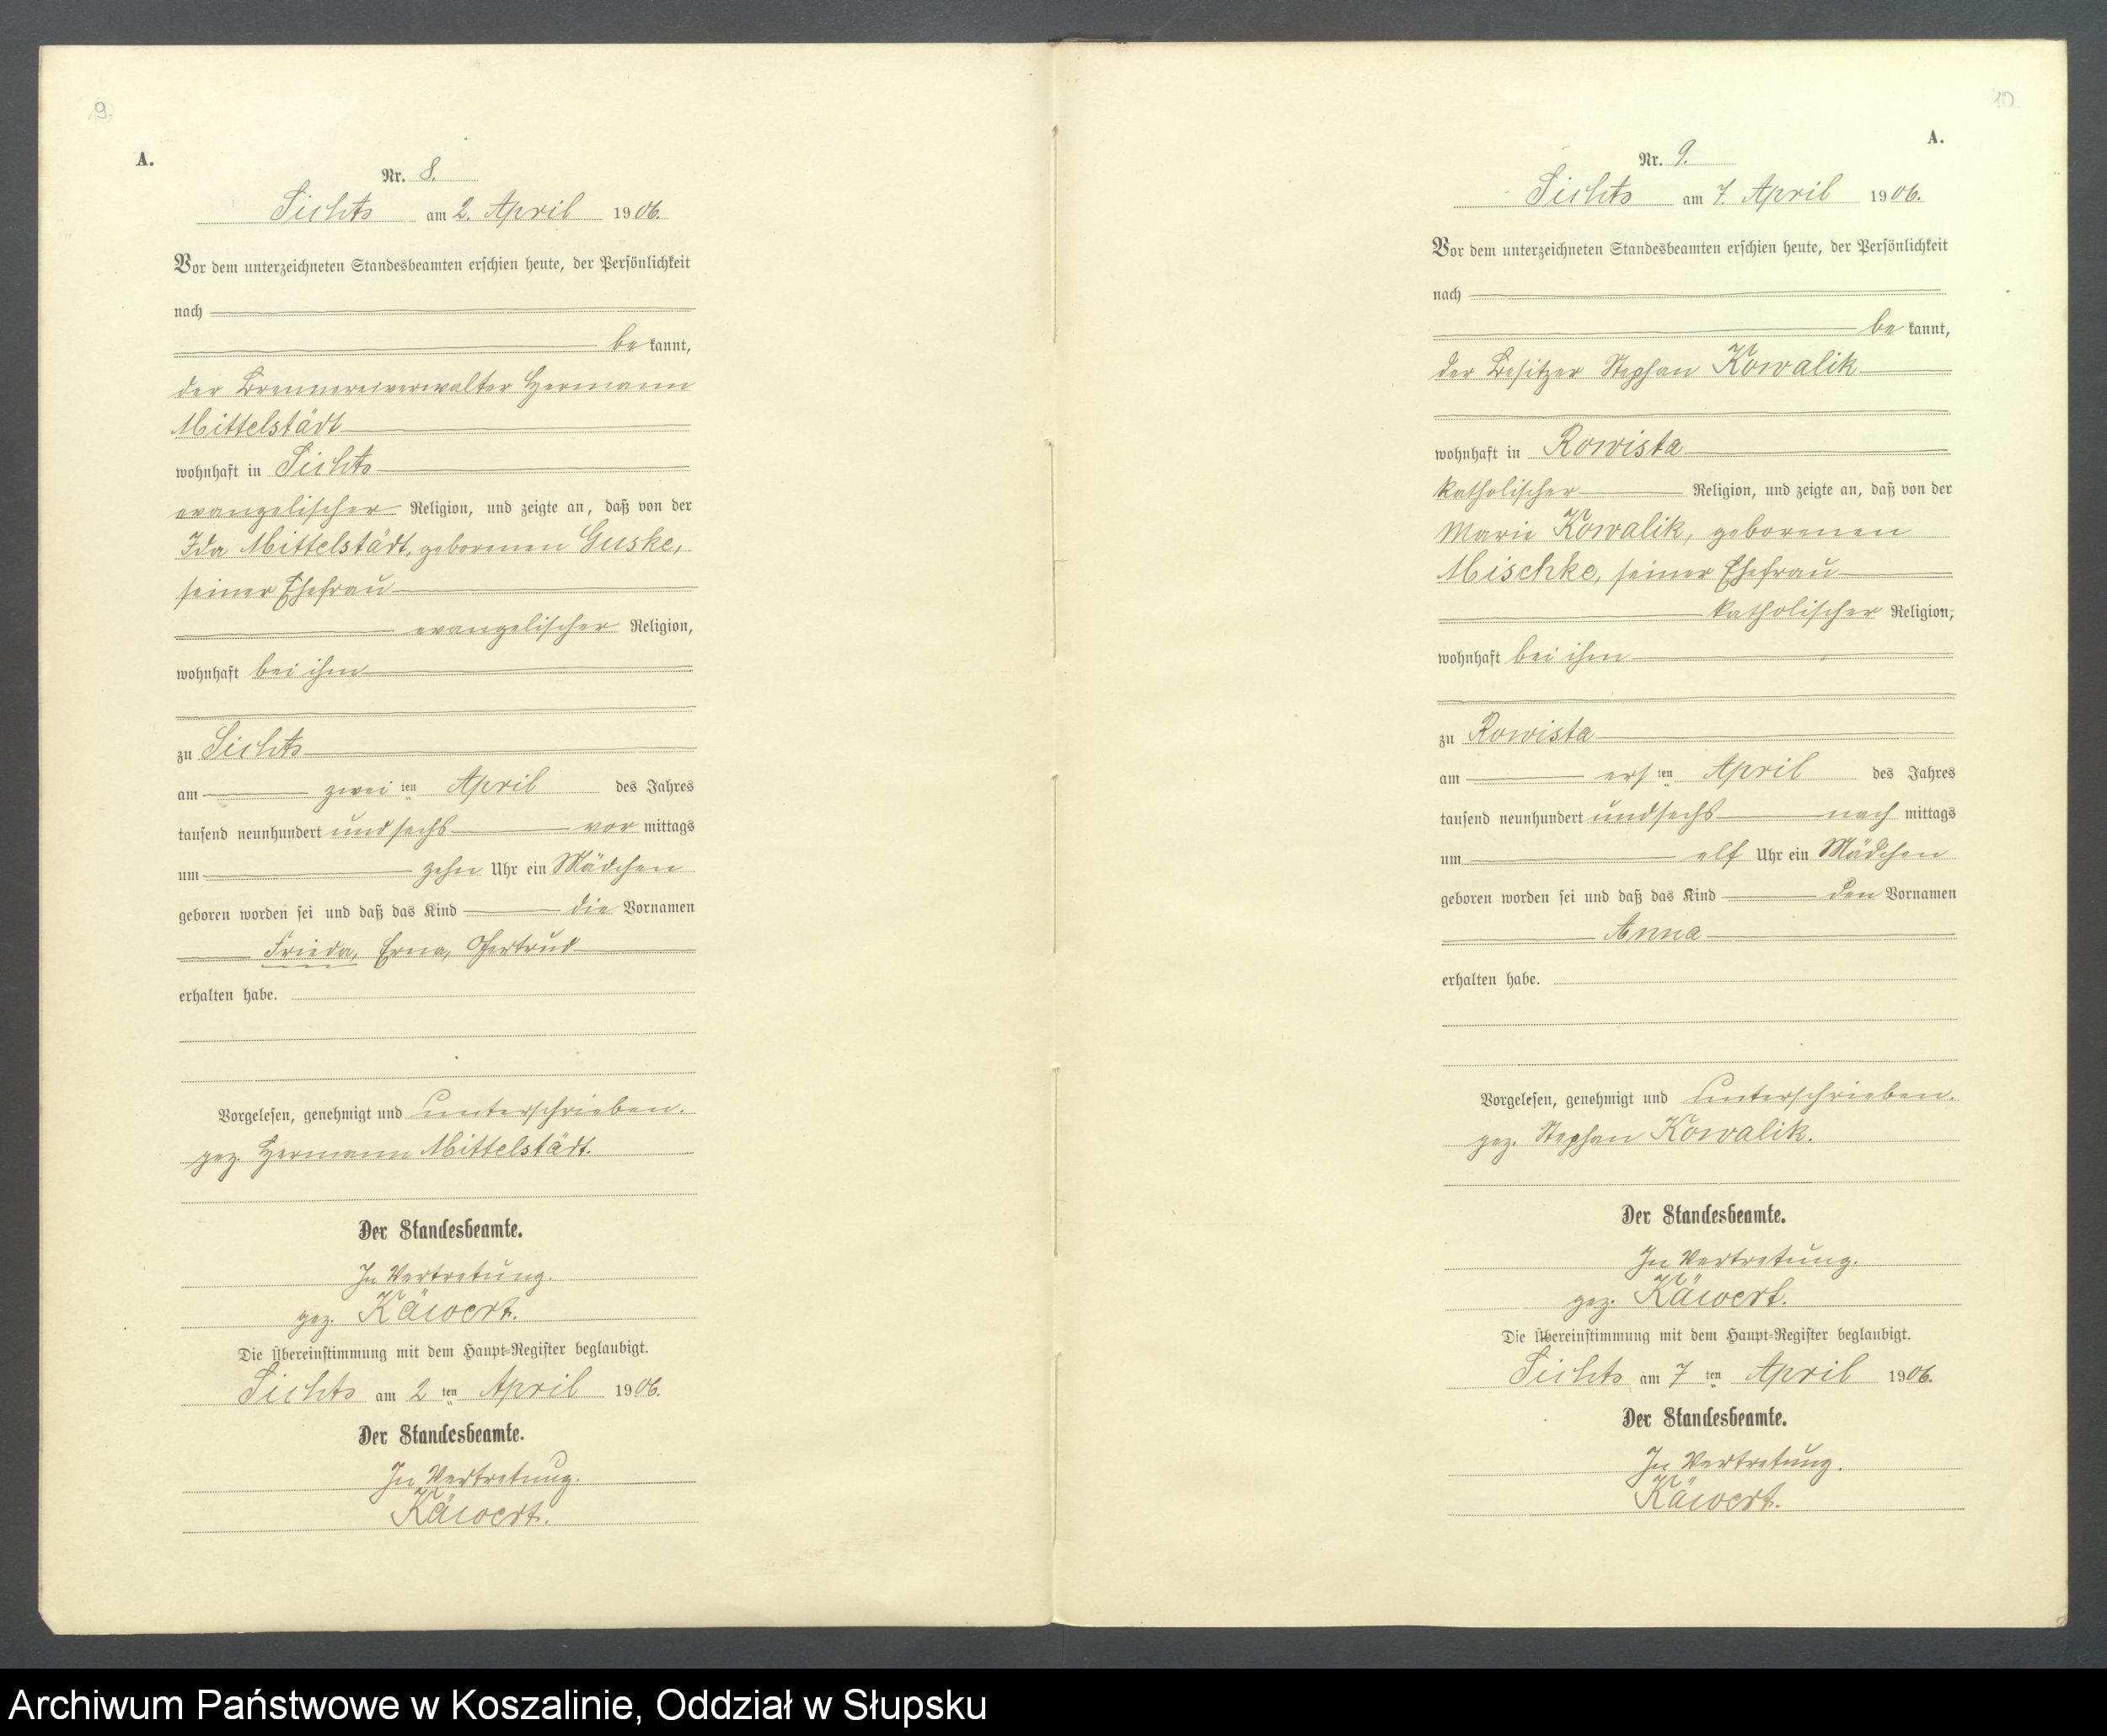 9.
A.
Nr. 8.
Lichts am 2. April 1906.
Vor dem unterzeichneten Standesbeamten erschien heute, der Persönlichkeit
nach
be kannt,
der Brennereiverwalter Hermann
Mittelstädt
wohnhaft in Lichts
evangelischer Religion, und zeigte an, daß von der
Ida Mittelstädt, geborenen Guske,
seiner Ehefrau
evangelischer Religion,
wohnhaft bei ihm
zu Lichts
am zwei ten April des Jahres
tausend neunhundert und sechs vor mittags
um zehn Uhr ein Mädchen
geboren worden sei und daß das Kind die Vornamen
Frieda, Erna, Gertrud
erhalten habe.
Vorgelesen, genehmigt und unterschrieben.
gez. Hermann Mittelstädt.
Der Standesbeamte.
In Vertretung.
gez. Käwert.
Die Übereinstimmung mit dem Haupt-Register beglaubigt.
Lichts am 2 ten April 1906.
Der Standesbeamte.
In Vertretung.
Käwert.
10.
A.
Nr. 9.
Lichts am 7. April 1906.
Vor dem unterzeichneten Standesbeamten erschien heute, der Persönlichkeit
nach
be kannt,
der Besitzer Stephan Kowalik
wohnhaft in Rowista
katholischer Religion, und zeigte an, daß von der
Marie Kowalik, geborenen
Mischke, seiner Ehefrau
katholischer Religion,
wohnhaft bei ihm
zu Rowista
am ers ten April des Jahres
tausend neunhundert und sechs nach mittags
um elf Uhr ein Mädchen
geboren worden sei und daß das Kind den Vornamen
Anna
erhalten habe.
Vorgelesen, genehmigt und unterschrieben.
gez. Stephan Kowalik.
Der Standesbeamte.
In Vertretung.
gez. Käwert.
Die Übereinstimmung mit dem Haupt-Register beglaubigt.
Lichts am 7 ten April 1906.
Der Standesbeamte.
In Vertretung.
Käwert.
Archiwum Państwowe w Koszalinie, Oddział w Słupsku